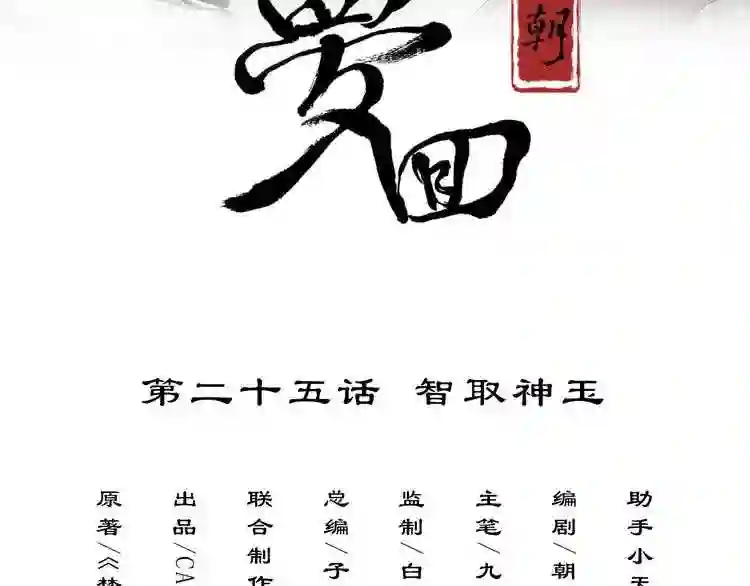 朝
回
第二十五话 智取神玉
原著/《梦
出品/CA
联合制作
总编/子
监制/白
主笔/九
编剧/朝
助手小天